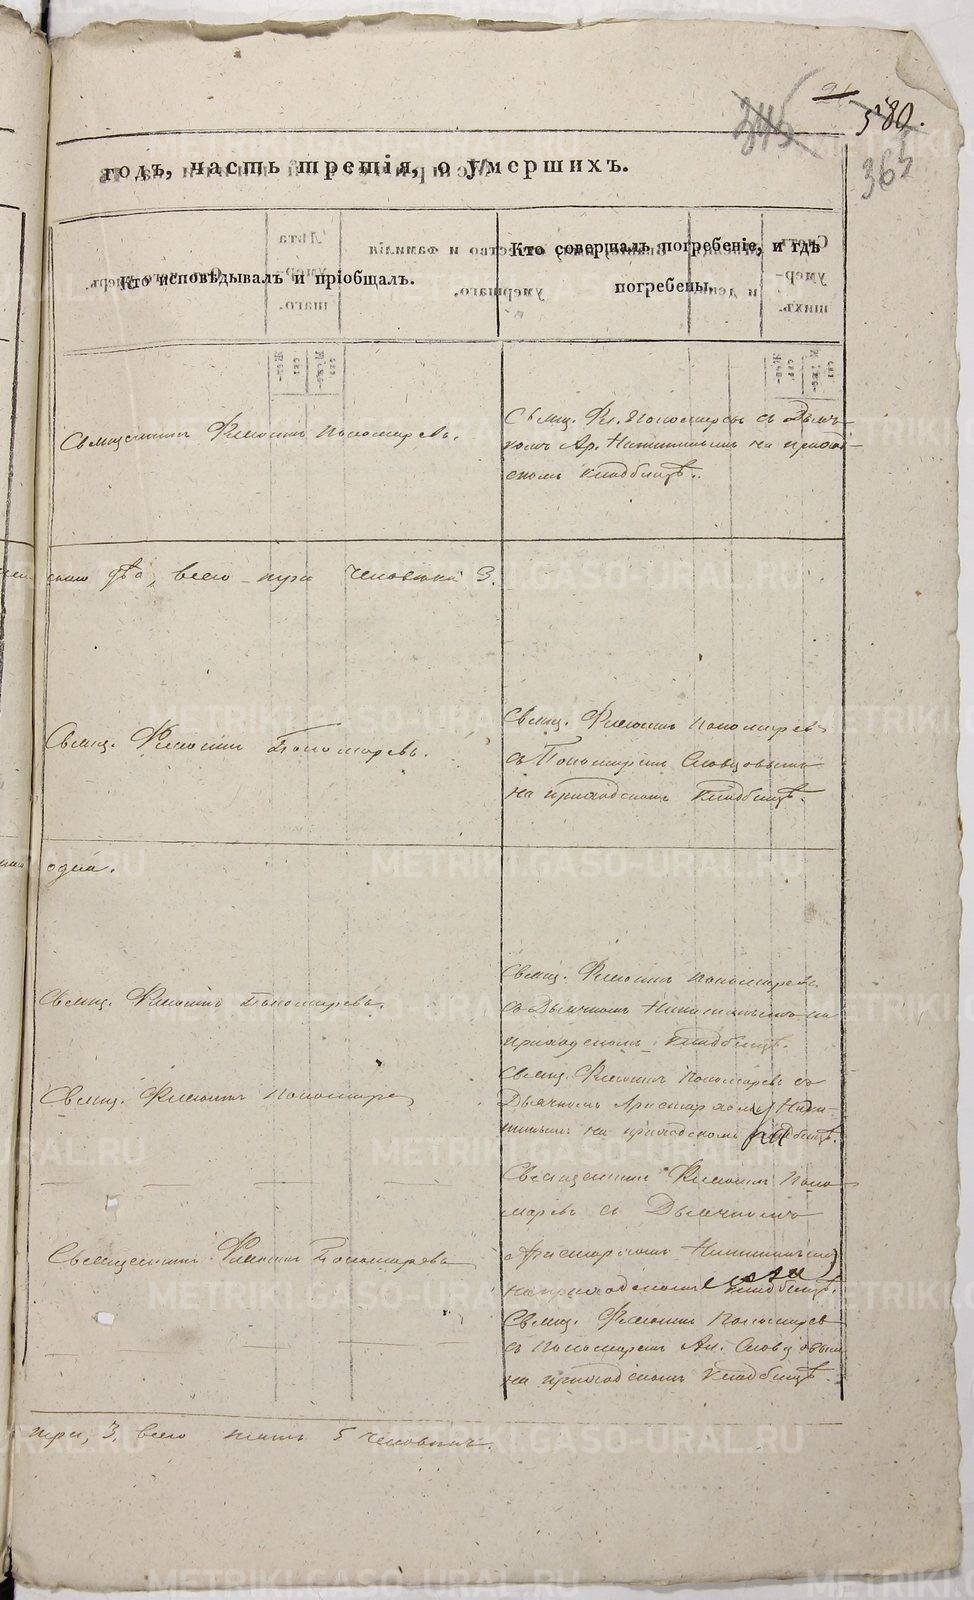 580.
365
годъ, часть третія, о умершихъ.
Кто исповѣдывалъ и пріобщалъ.
Кто совершалъ погребеніе, и гдѣ
погребены.
Священникъ Филиппъ Пономаревъ.
Свящ. Фл. Пономаревъ съ Дьяч-
комъ Ар. Никитинымъ на приход-
скомъ кладбищѣ.
два, всего три человѣка 3.
Свящ. Пономаревъ.
Свящ. Пономаревъ
съ Пономаремъ Словцовымъ
на приходскомъ кладбищѣ.
одна.
Свящ. Пономаревъ.
Свящ. Пономаревъ
съ Дьячкомъ Никитинымъ на
приходскомъ кладбищѣ.
Свящ. Пономаревъ
Свящ. Пономаревъ съ
Дьячкомъ Аристархомъ Ники-
тинымъ на приходскомъ кладбищѣ.
Священникъ Понома-
ревъ съ Дьячкомъ
Аристархомъ Никитинымъ
на приходскомъ кладбищѣ.
Священникъ Пономаревъ
Свящ. Пономаревъ
съ Пономаремъ Ал. Словцовымъ
на приходскомъ кладбищѣ.
три, 3, всего пять 5 человѣкъ.
METRIKI.GASO-URAL.RU